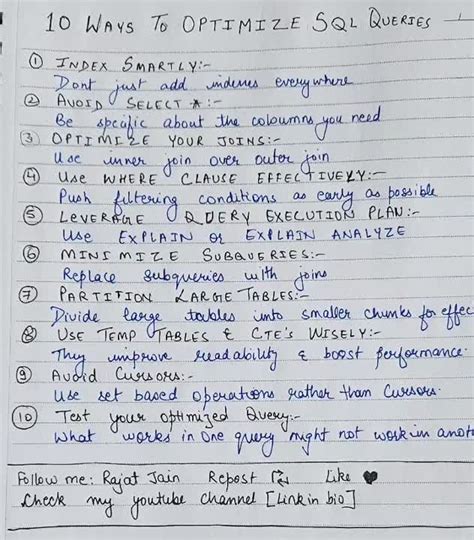 10 WAYS TO OPTIMIZE SQL QUERIES
① INDEX SMARTLY:-
Dont just add indenes everywhere
② AVOID SELECT *:-
Be specific about the coloumns you need
③ OPTIMIZE YOUR JOINS:-
Use inner join over outer join
④ USE WHERE CLAUSE EFFECTIVELY:-
Push filtering conditions as early as possible
⑤ LEVERAGE QUERY EXECUTION PLAN:-
USE EXPLAIN or EXPLAIN ANALYZE
⑥ MINIMIZE SUBQUERIES:-
Replace subqueries with joins
⑦ PARTITION LARGE TABLES:-
Divide large tables into smaller chunks for effec
⑧ USE TEMP TABLES & CTE'S WISELY:-
They improve readability & boost performance.
⑨ Avoid Cursors:-
Use set based operations rather than Cursors.
⑩ Test your optimized Query:-
What works in one query might not work in anot
Follow me: Rajat Jain Repost Like
Check my youtube channel [Link in bio]